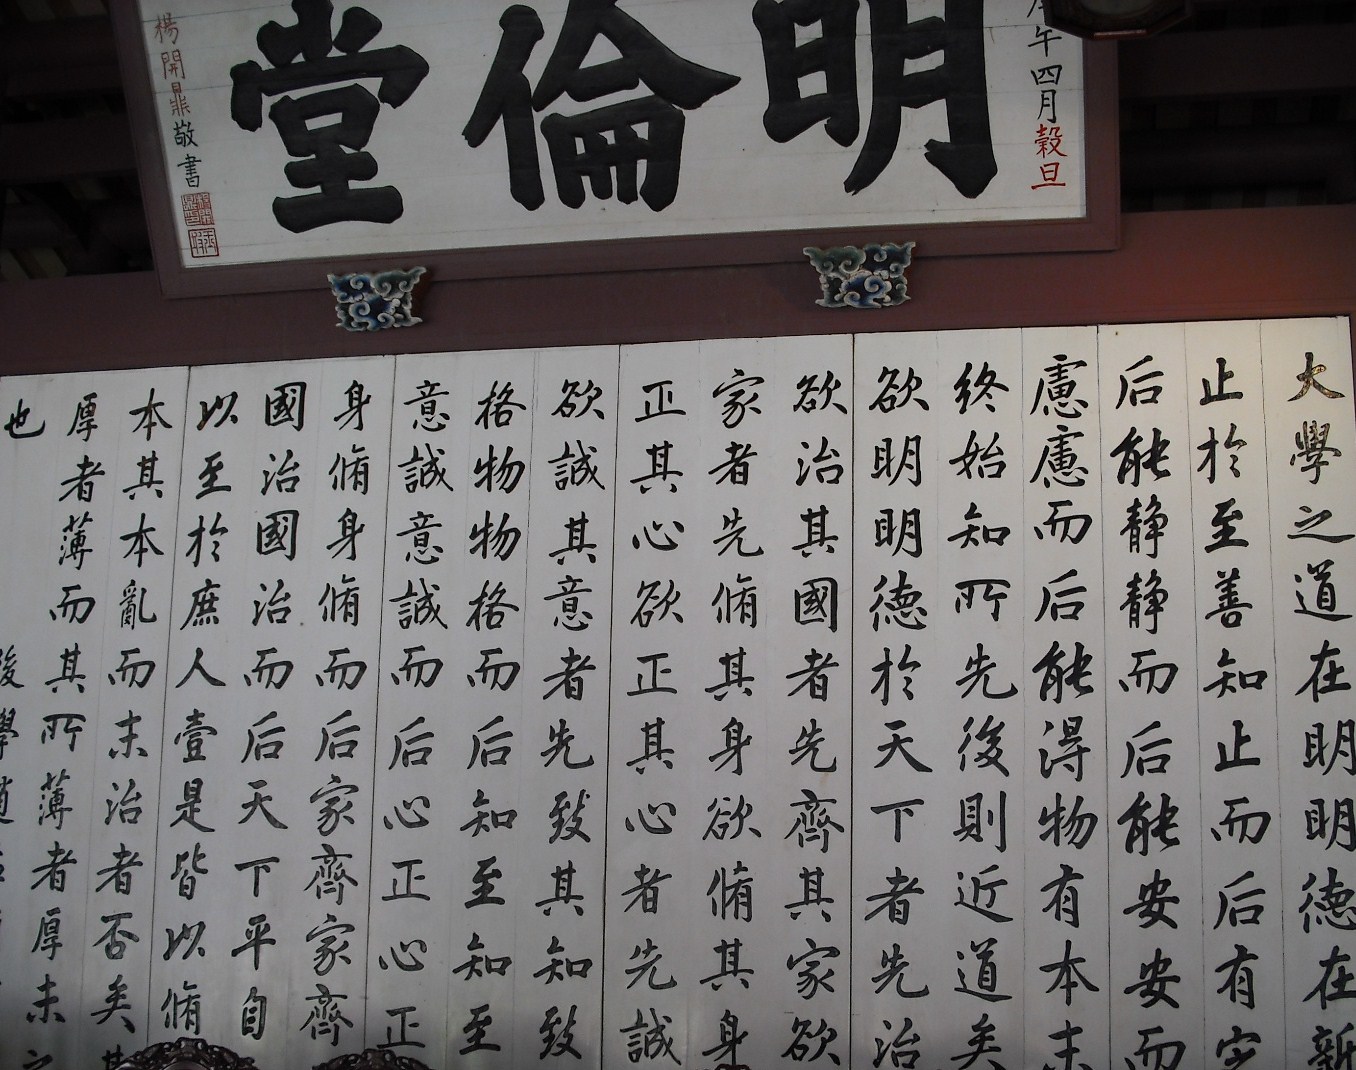 午四月穀旦
明倫堂
楊開鼎敬書
大學之道在明明德在新
止於至善知止而后有定
后能静静而后能安安而
慮慮而后能得物有本末
終始知所先後則近道矣
欲明明德於天下者先治
欲治其國者先齊其家欲
家者先脩其身欲脩其身
正其心欲正其心者先誠
欲誠其意者先致其知致
格物物格而后知至知至
意誠意誠而后心正心正
身脩身脩而后家齊家齊
國治國治而后天下平自
以至於庶人壹是皆以脩
本其本亂而末治者否矣其
厚者薄而其所薄者厚未之
也
後學